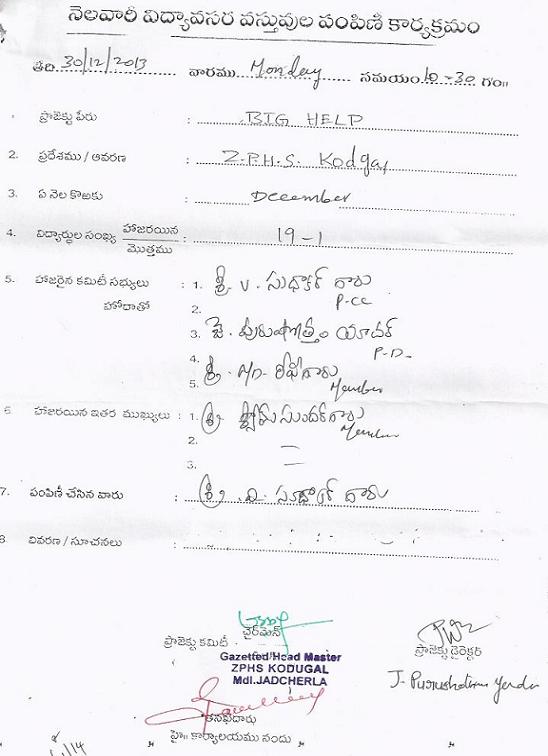 నెలవారీ విద్యావసర వస్తువుల పంపిణీ కార్యక్రమం
తేది 30/12/2013 వారము Monday సమయం 10-30 గం॥
ప్రాజెక్టు పేరు : BIG HELP
2. ప్రదేశము / ఆవరణ : Z.P.H.S. Kodgal
3. ఏ నెల కొఱకు : December
4. విద్యార్థుల సంఖ్య హాజరయిన / మొత్తము : 19-1
5. హాజరైన కమిటీ సభ్యులు : 1. శ్రీ V. సుధాకర్ గారు
హోదాతో 2. P-CC
3. జె. పురుషోత్తం యాదవ్
4. P-D-
5. శ్రీ MD. రఫీగారు Member
6 హాజరయిన ఇతర ముఖ్యులు : 1. శ్రీ శ్యామ్ సుందర్ గారు
2. — Member
3. —
7. పంపిణీ చేసిన వారు : శ్రీ. D. సుధాకర్ గారు
8 వివరణ / సూచనలు :
ప్రాజెక్టు కమిటీ చైర్మెన్
ప్రాజెక్టు డైరెక్టర్
Gazetted Head Master
ZPHS KODUGAL
Mdl.JADCHERLA
J. Purushotham Yadav
తనిఖీదారు
హై॥ కార్యాలయము నందు